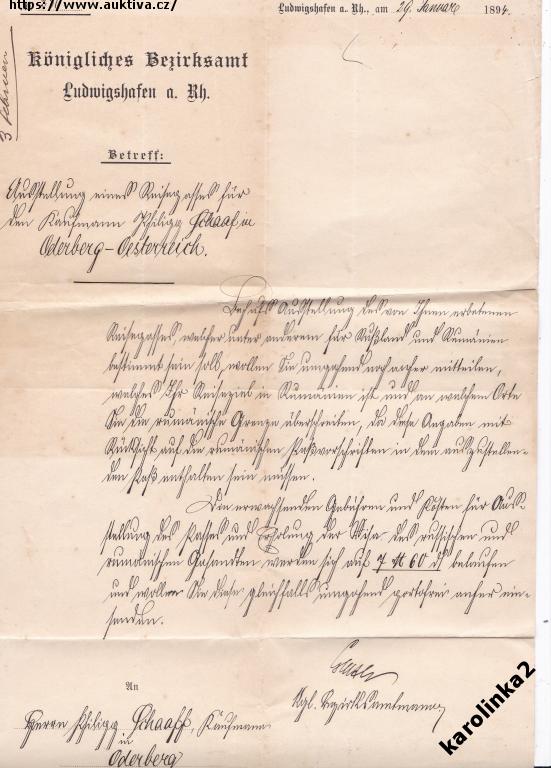 https://www.auktiva.cz/
Ludwigshafen a. Rh., am 29. Januar 1894.
Königliches Bezirksamt
Ludwigshafen a. Rh.
Betreff:
Ausstellung eines Reisepasses für
den Kaufmann Philipp Schaaf in
Oderberg-Oesterreich.
Behufs Ausstellung des von Ihnen erbetenen
Reisepasses, welcher unter anderem für Rußland und Rumänien
bestimmt sein soll, wollen Sie umgehend noch anher mitteilen,
welches Ihr Reiseziel in Rumänien ist und an welchem Orte
Sie die rumänische Grenze überschreiten, da diese Angaben mit
Rücksicht auf die rumänischen Paßvorschriften in dem auszustellen-
den Paß enthalten sein müssen.
Die erwachsenden Gebühren und Kosten für Aus-
stellung des Passes und Erholung der Visa des russischen und
rumänischen Gesandten werden sich auf 7 M 60 d belaufen
und wollen Sie diese gleichfalls umgehend portofrei anher ein-
senden.
Kgl. Bezirksamtmann
An
Herrn Philipp Schaaff, Kaufmann
in
Oderberg
karolinka2